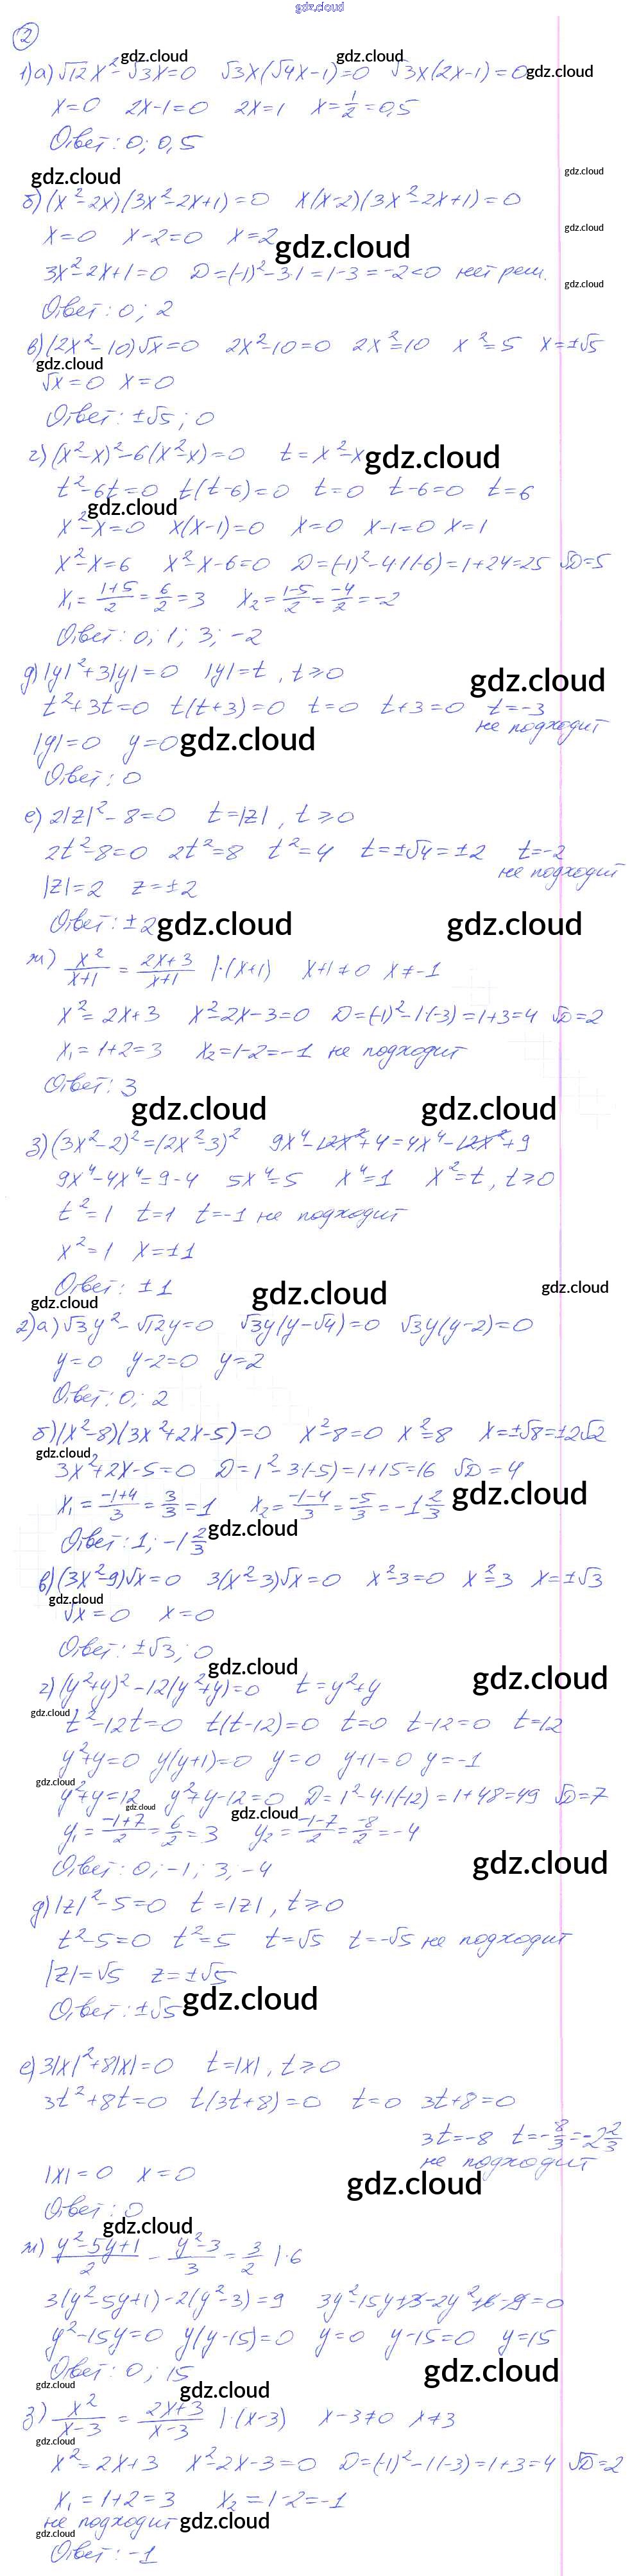 gdz.cloud
2
1) а) √12x² - √3x = 0 √3x(√4x - 1) = 0 √3x(2x - 1) = 0
x = 0 2x - 1 = 0 2x = 1 x = 1/2 = 0,5
Ответ: 0; 0,5
б) (x² - 2x)(3x² - 2x + 1) = 0 x(x - 2)(3x² - 2x + 1) = 0
x = 0 x - 2 = 0 x = 2
3x² - 2x + 1 = 0 D = (-1)² - 3·1 = 1 - 3 = -2 < 0 нет реш.
Ответ: 0; 2
в) (2x² - 10)√x = 0 2x² - 10 = 0 2x² = 10 x² = 5 x = ±√5
√x = 0 x = 0
Ответ: ±√5; 0
г) (x² - x)² - 6(x² - x) = 0 t = x² - x
t² - 6t = 0 t(t - 6) = 0 t = 0 t - 6 = 0 t = 6
x² - x = 0 x(x - 1) = 0 x = 0 x - 1 = 0 x = 1
x² - x = 6 x² - x - 6 = 0 D = (-1)² - 4·1·(-6) = 1 + 24 = 25 √D = 5
x₁ = (1+5)/2 = 6/2 = 3 x₂ = (1-5)/2 = -4/2 = -2
Ответ: 0; 1; 3; -2
д) |y|² + 3|y| = 0 |y| = t, t ≥ 0
t² + 3t = 0 t(t + 3) = 0 t = 0 t + 3 = 0 t = -3
не подходит
|y| = 0 y = 0
Ответ: 0
е) 2|z|² - 8 = 0 t = |z|, t ≥ 0
2t² - 8 = 0 2t² = 8 t² = 4 t = ±√4 = ±2 t = -2
не подходит
|z| = 2 z = ±2
Ответ: ±2
ж) x²/(x+1) = (2x+3)/(x+1) |·(x+1) x + 1 ≠ 0 x ≠ -1
x² = 2x + 3 x² - 2x - 3 = 0 D = (-1)² - 1·(-3) = 1 + 3 = 4 √D = 2
x₁ = 1 + 2 = 3 x₂ = 1 - 2 = -1 не подходит
Ответ: 3
з) (3x² - 2)² = (2x² - 3)² 9x⁴ - 12x² + 4 = 4x⁴ - 12x² + 9
9x⁴ - 4x⁴ = 9 - 4 5x⁴ = 5 x⁴ = 1 x² = t, t ≥ 0
t² = 1 t = 1 t = -1 не подходит
x² = 1 x = ±1
Ответ: ±1
2) а) √3y² - √12y = 0 √3y(y - √4) = 0 √3y(y - 2) = 0
y = 0 y - 2 = 0 y = 2
Ответ: 0; 2
б) (x² - 8)(3x² + 2x - 5) = 0 x² - 8 = 0 x² = 8 x = ±√8 = ±2√2
3x² + 2x - 5 = 0 D = 1² - 3·(-5) = 1 + 15 = 16 √D = 4
x₁ = (-1+4)/3 = 3/3 = 1 x₂ = (-1-4)/3 = -5/3 = -1 2/3
Ответ: 1; -1 2/3
в) (3x² - 9)√x = 0 3(x² - 3)√x = 0 x² - 3 = 0 x² = 3 x = ±√3
√x = 0 x = 0
Ответ: ±√3; 0
г) (y² + y)² - 12(y² + y) = 0 t = y² + y
t² - 12t = 0 t(t - 12) = 0 t = 0 t - 12 = 0 t = 12
y² + y = 0 y(y + 1) = 0 y = 0 y + 1 = 0 y = -1
y² + y = 12 y² + y - 12 = 0 D = 1² - 4·1·(-12) = 1 + 48 = 49 √D = 7
y₁ = (-1+7)/2 = 6/2 = 3 y₂ = (-1-7)/2 = -8/2 = -4
Ответ: 0; -1; 3; -4
д) |z|² - 5 = 0 t = |z|, t ≥ 0
t² - 5 = 0 t² = 5 t = √5 t = -√5 не подходит
|z| = √5 z = ±√5
Ответ: ±√5
е) 3|x|² + 8|x| = 0 t = |x|, t ≥ 0
3t² + 8t = 0 t(3t + 8) = 0 t = 0 3t + 8 = 0
3t = -8 t = -8/3 = -2 2/3
не подходит
|x| = 0 x = 0
Ответ: 0
ж) (y² - 5y + 1)/2 - (y² - 3)/3 = 3/2 |·6
3(y² - 5y + 1) - 2(y² - 3) = 9 3y² - 15y + 3 - 2y² + 6 - 9 = 0
y² - 15y = 0 y(y - 15) = 0 y = 0 y - 15 = 0 y = 15
Ответ: 0; 15
з) x²/(x-3) = (2x+3)/(x-3) |·(x-3) x - 3 ≠ 0 x ≠ 3
x² = 2x + 3 x² - 2x - 3 = 0 D = (-1)² - 1·(-3) = 1 + 3 = 4 √D = 2
x₁ = 1 + 2 = 3 x₂ = 1 - 2 = -1
не подходит
Ответ: -1